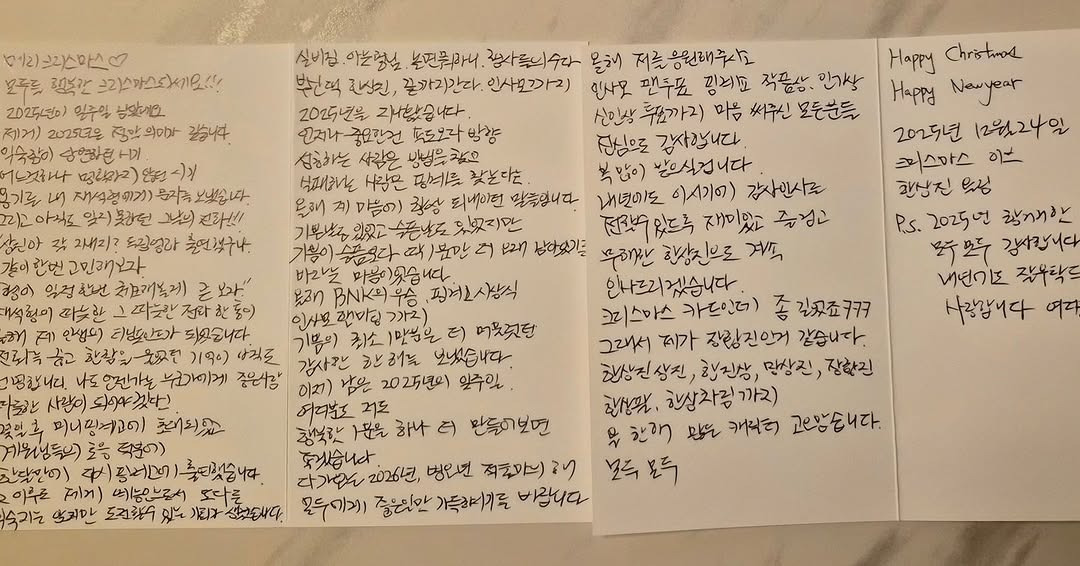 메리크리스마스♡
모두들 행복한 크리스마스되세요!!!
2025년이 일주일 남았네요
제게 2025년은 정말 의미가 깊습니다
익숙함이 당연하던 시기
어느것하나 명확하지 않던 시기
용기로 내 재석형에게 문자를 보냈습니다.
그리고 아직도 잊지못하던 그날의 전화!!!
상진아 잘 지내지?
같이한번 고민해보자
형이 일정한번 체크해볼게 큰
재석형이 따뜻한 그 따뜻한 전화 한통이
올해 제 인생의 터닝포인트가 되었습니다
전화를 끊고 한참을 울었던 기억이 아직도
선명합니다. 나도 언젠가는 누군가에게 좋은사람
따뜻한 사람이 되어야겠다!
몇일후 미니핑계고에 초대되었고
계원님들의 호응 덕분에
한달만에 다시 핑계고에 출연했습니다
그 이후로 제게 예능인으로서 또다른
익숙지는 않지만 도전할수 있는 기회가 생겼습니다.
실비집. 아는형님. 놀면뭐하니. 형사들의수다
부산댁 한상진, 끝까지간다. 인사모까지
2025년을 지내왔습니다.
언제나 중요한건 속도보다 방향
성공하는 사람은 방법을 찾고
실패하는 사람은 핑계를 찾는다는.
올해 제 마음에 항상 되새이던 말들입니다
기쁜날도 있었고 슬픈날도 있었지만
기쁨이 슬픔보다 딱 1분만 더 오래 남아있기를
바라는 마음이었습니다
올해 BNK의 우승, 핑계고시상식
인사모 팬미팅까지
기쁨이 최소 1만분은 더 머물렀던
감사한 한해를 보냈습니다.
이제 남은 2025년의 일주일.
여러분도 저도
행복한 1분을 하나 더 만들어보면
좋겠습니다
다가오는 2026년, 병오년 적토마의 해
모두에게 좋은일만 가득하기를 바랍니다
올해 저를 응원해주시고
인사모 팬투표 핑계고 작품상. 인기상
신인상 투표까지 마음 써주신 모든분들
진심으로 감사합니다.
복많이 받으실겁니다.
내년에도 이시기에 감사인사를
전할수있도록 재미있고 즐겁고
무해한 한상진으로 계속
인사드리겠습니다.
크리스마스 카드인데 좀 길었죠ㅋㅋㅋ
그래서 제가 장황진인거 같습니다.
한상진상진, 한진상, 망상진, 장황진
한상팔, 한삼차림까지
올 한해 많은 캐릭터 고맙습니다.
모두 모두
Happy Christmas
Happy New year
2025년 12월 24일
크리스마스 이브
한상진 올림
P.s. 2025년 함께한
모두 모두 감사합니다
내년에도 잘부탁드
사랑합니다 여